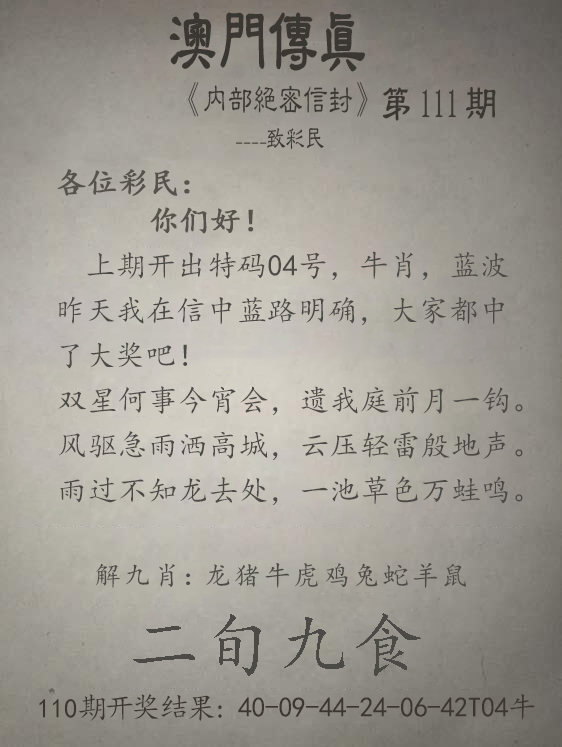 澳門傳眞
《内部絕密信封》第111期
----致彩民
各位彩民：
你们好！
上期开出特码04号，牛肖，蓝波
昨天我在信中蓝路明确，大家都中
了大奖吧！
双星何事今宵会，遗我庭前月一钩。
风驱急雨洒高城，云压轻雷殷地声。
雨过不知龙去处，一池草色万蛙鸣。
解九肖：龙猪牛虎鸡兔蛇羊鼠
二旬九食
110期开奖结果：40-09-44-24-06-42T04牛